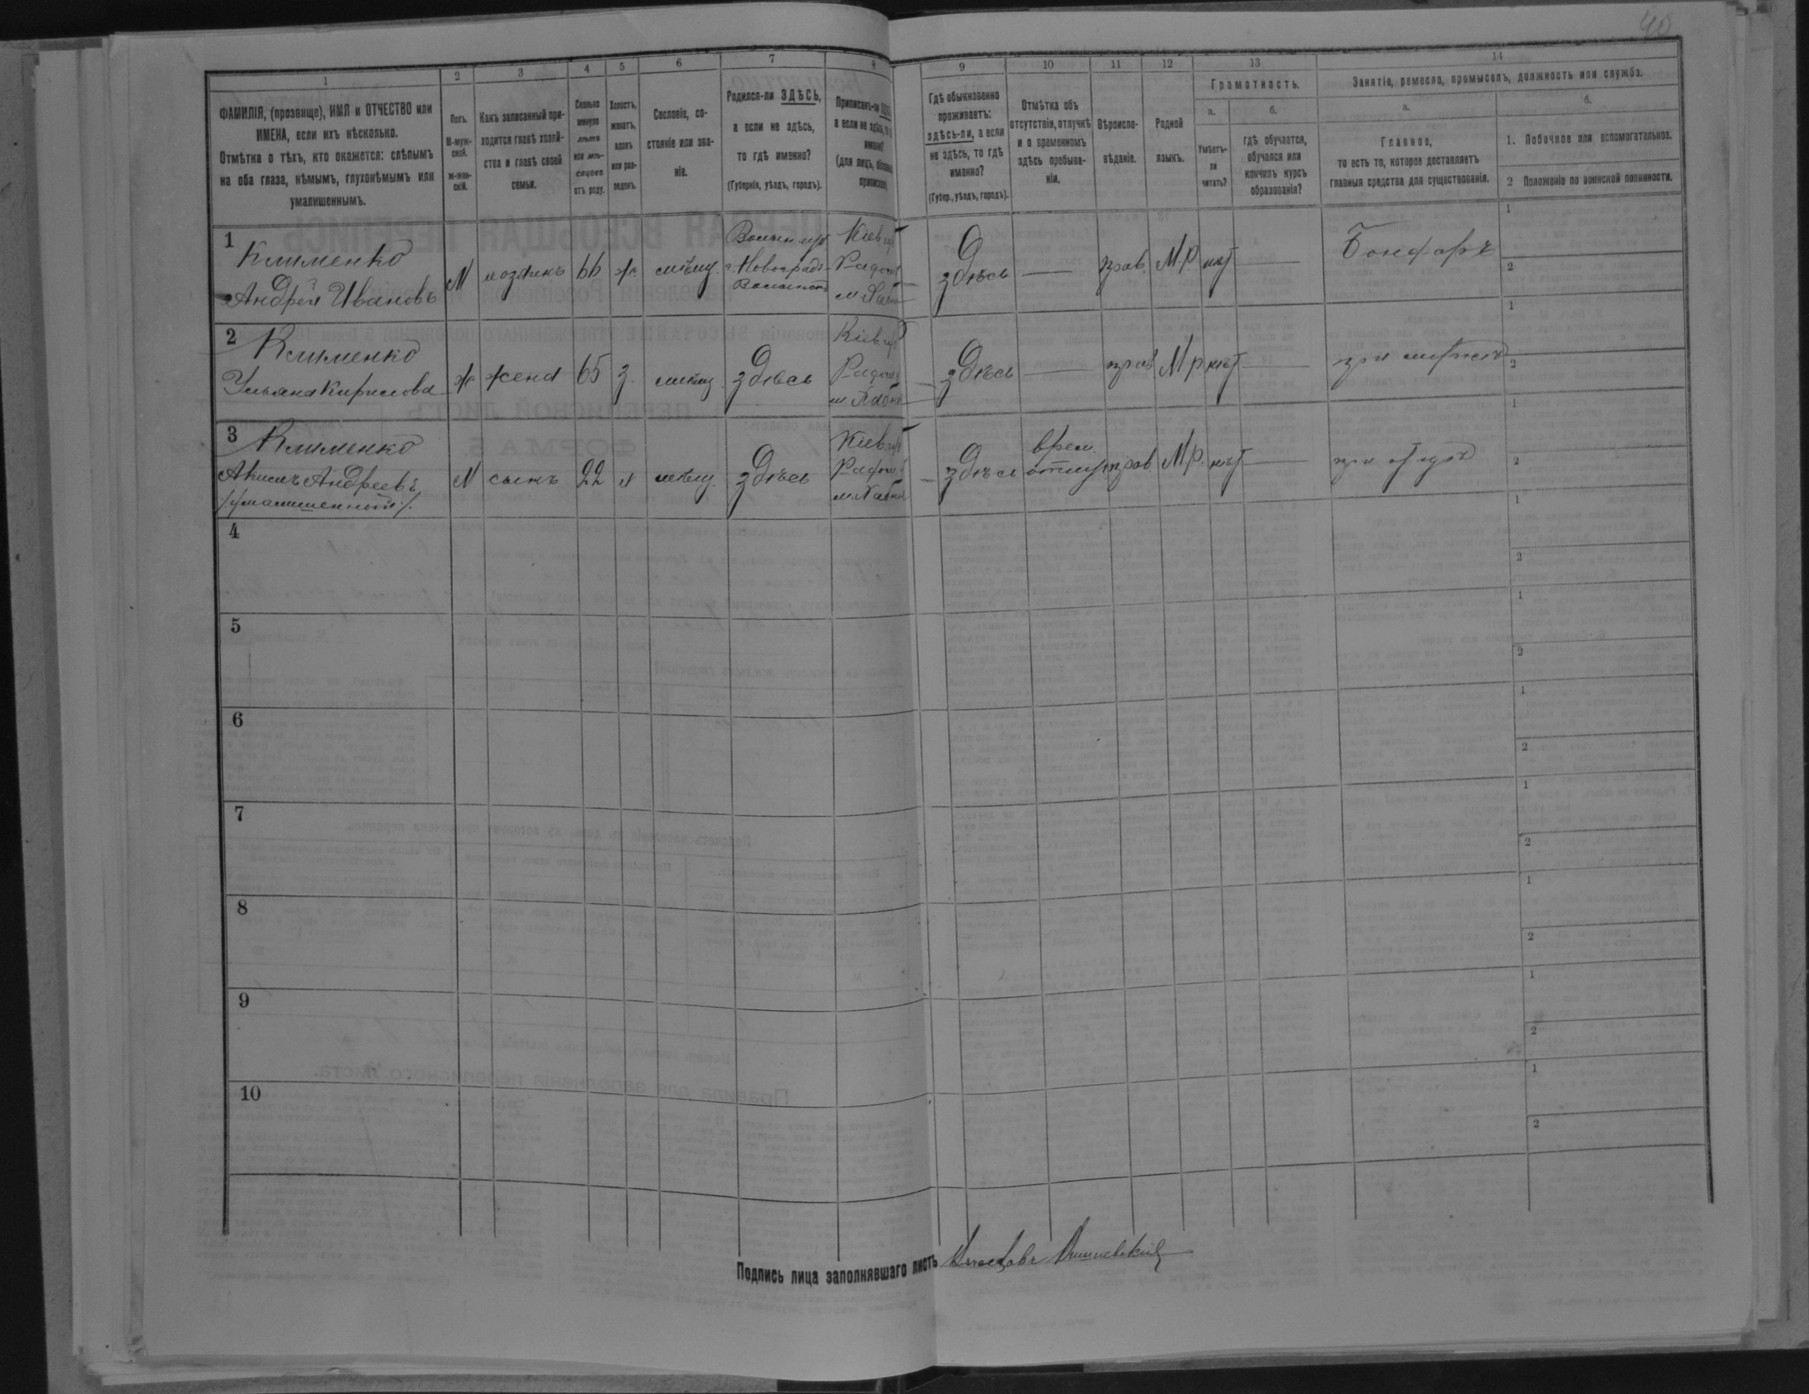 40
1
2
3
4
5
6
7
8
9
10
11
12
13
14
ФАМИЛІЯ, (прозвище), ИМЯ и ОТЧЕСТВО или
ИМЕНА, если ихъ нѣсколько.
Отмѣтка о тѣхъ, кто окажется: слѣпымъ
на оба глаза, нѣмымъ, глухонѣмымъ или
умалишеннымъ.
Полъ.
М-муж-
ской.
Ж-жен-
скій.
Какъ записанный при-
ходится главѣ хозяй-
ства и главѣ своей
семьи.
Сколько
минуло
лѣтъ
или мѣ-
сяцевъ
отъ роду.
Холостъ,
женатъ,
вдовъ
или раз-
веденъ.
Сословіе, со-
стояніе или зва-
ніе.
Родился-ли ЗДѢСЬ,
а если не здѣсь,
то гдѣ именно?
(Губернія, уѣздъ, городъ).
Приписанъ-ли
а если не здѣсь,
именно?
(для лицъ,
Гдѣ обыкновенно
проживаетъ:
здѣсь-ли, а если
не здѣсь, то гдѣ
именно?
(Губер., уѣздъ, городъ).
Отмѣтка объ
отсутствіи, отлучкѣ
и о временномъ
здѣсь пребыва-
ніи.
Вѣроиспо-
вѣданіе.
Родной
языкъ.
Грамотность.
а.
б.
Умѣетъ-
ли
читать?
гдѣ обучается,
обучался или
кончилъ курсъ
образованія?
Занятіе, ремесло, промыселъ, должность или служба.
а.
б.
Главное,
то есть то, которое доставляетъ
главныя средства для существованія.
1. Побочное или вспомогательное.
2 Положеніе по воинской повинности.
1
Клименко
Андрей Ивановъ
М
хозяинъ
66
ж
мѣщ
Волын губ
Новоградъ-
Волынск
Кіев губ
Радом
м
здѣсь
—
прав.
М.р
нѣт
—
Бондарь
1
2
2
Клименко
Ульяна Кирилова
ж
жена
65
з.
мѣщ
здѣсь
Кіев губ
Радом
м.
здѣсь
—
прав
М.р
нѣт
—
при мужѣ
1
2
3
Клименко
Акимъ Андреевъ
/умалишенный/.
М
сынъ
22
х
мѣщ.
здѣсь
Кіев губ
Радом
м.
здѣсь
врем
отлу
прав
М.р.
нѣт
—
при отцѣ
1
2
4
1
2
5
1
2
6
1
2
7
1
2
8
1
2
9
1
2
10
1
2
Подпись лица заполнявшаго листъ